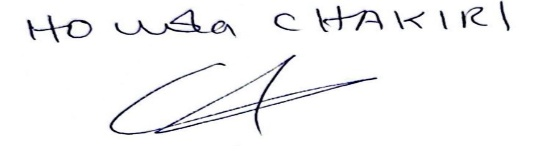 HOUDA CHAKIRI